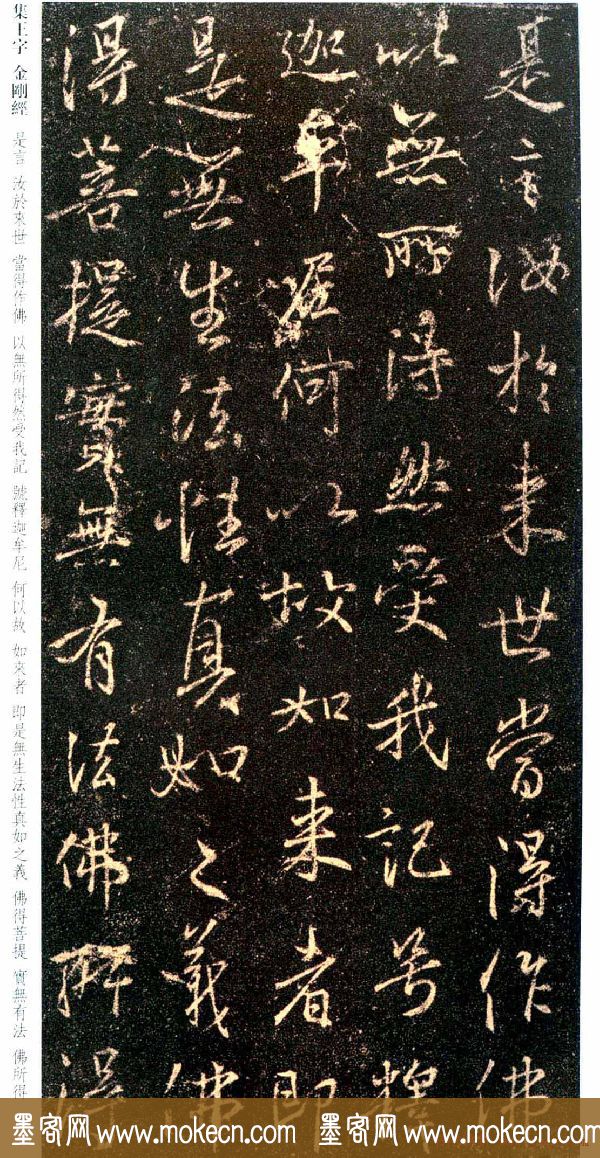 是言汝於来世當得作佛
以無所得然受我記号釋
迦牟尼何以故如来者即
是無生法性真如之義佛
得菩提實無有法佛所得
集王字 金剛經 是言 汝於來世 當得作佛 以無所得然受我記 號釋迦牟尼 何以故 如來者 即是無生法性真如之義 佛得菩提 實無有法 佛所得
墨客网 www.mokecn.com 墨客网 www.mokecn.com